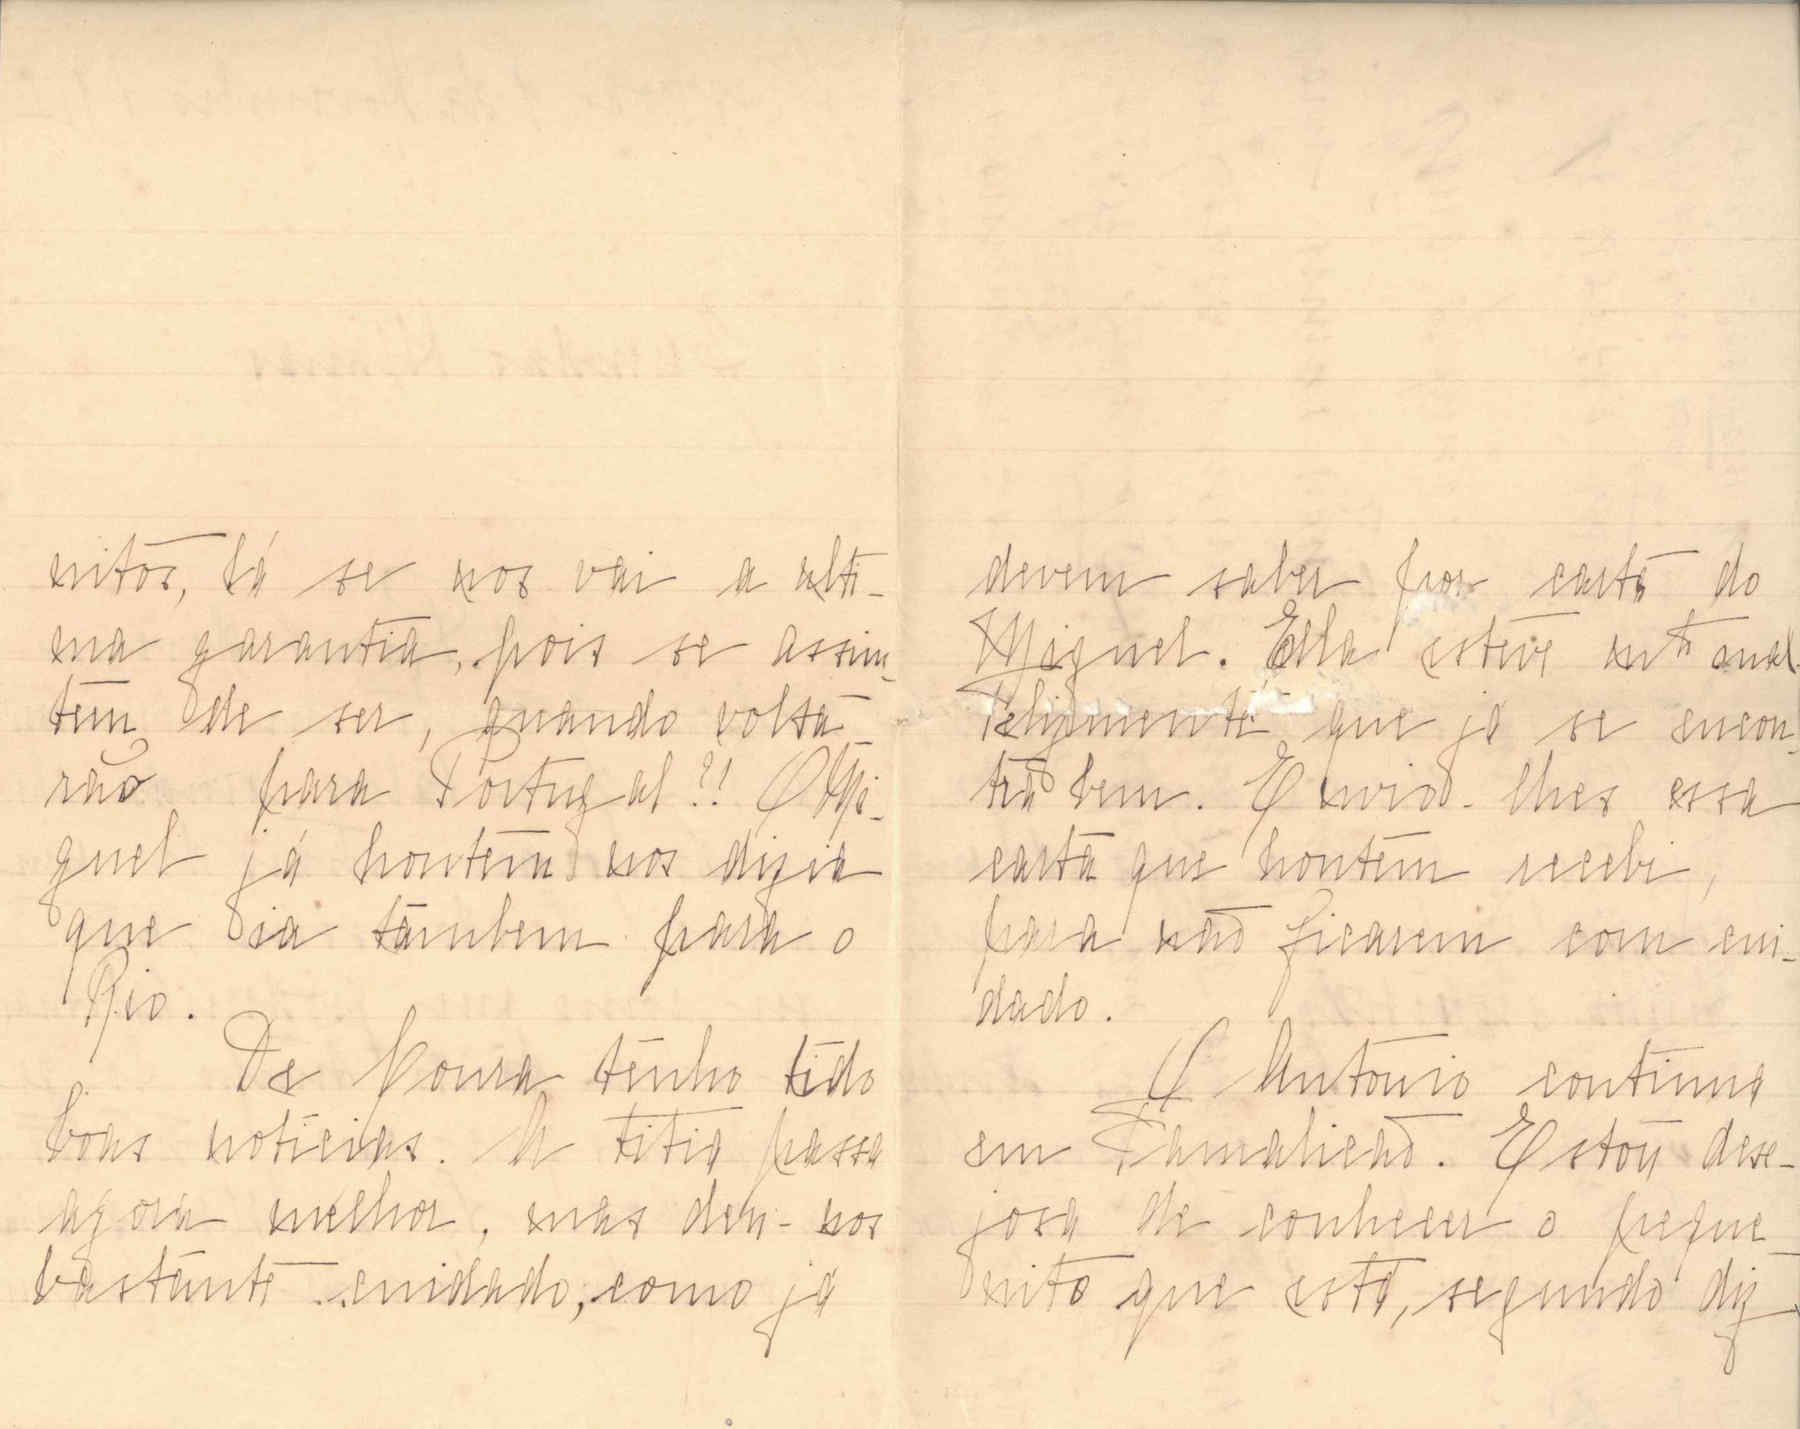 nitos, lá se nos vai a ulti-
ma garantia, pois se assim
têm de ser, quando volta-
rão para Portugal?! O Mi-
guel já hontem nos dizia
que ia tambem para o
Rio.
De Moura tenho tido
boas noticias. A titia passa
agora melhor, mas deu-nos
bastante cuidado, como já
devem saber por carta do
Miguel. Ella esteve mto mal.
Felizmente que já se encon-
tra bem. Envio-lhes essa
carta que hontem recebi,
para não ficarem com cui-
dado.
O Antonio continua
em Famalicão. Estou dese-
josa de conhecer o peque-
nito que está, segundo diz